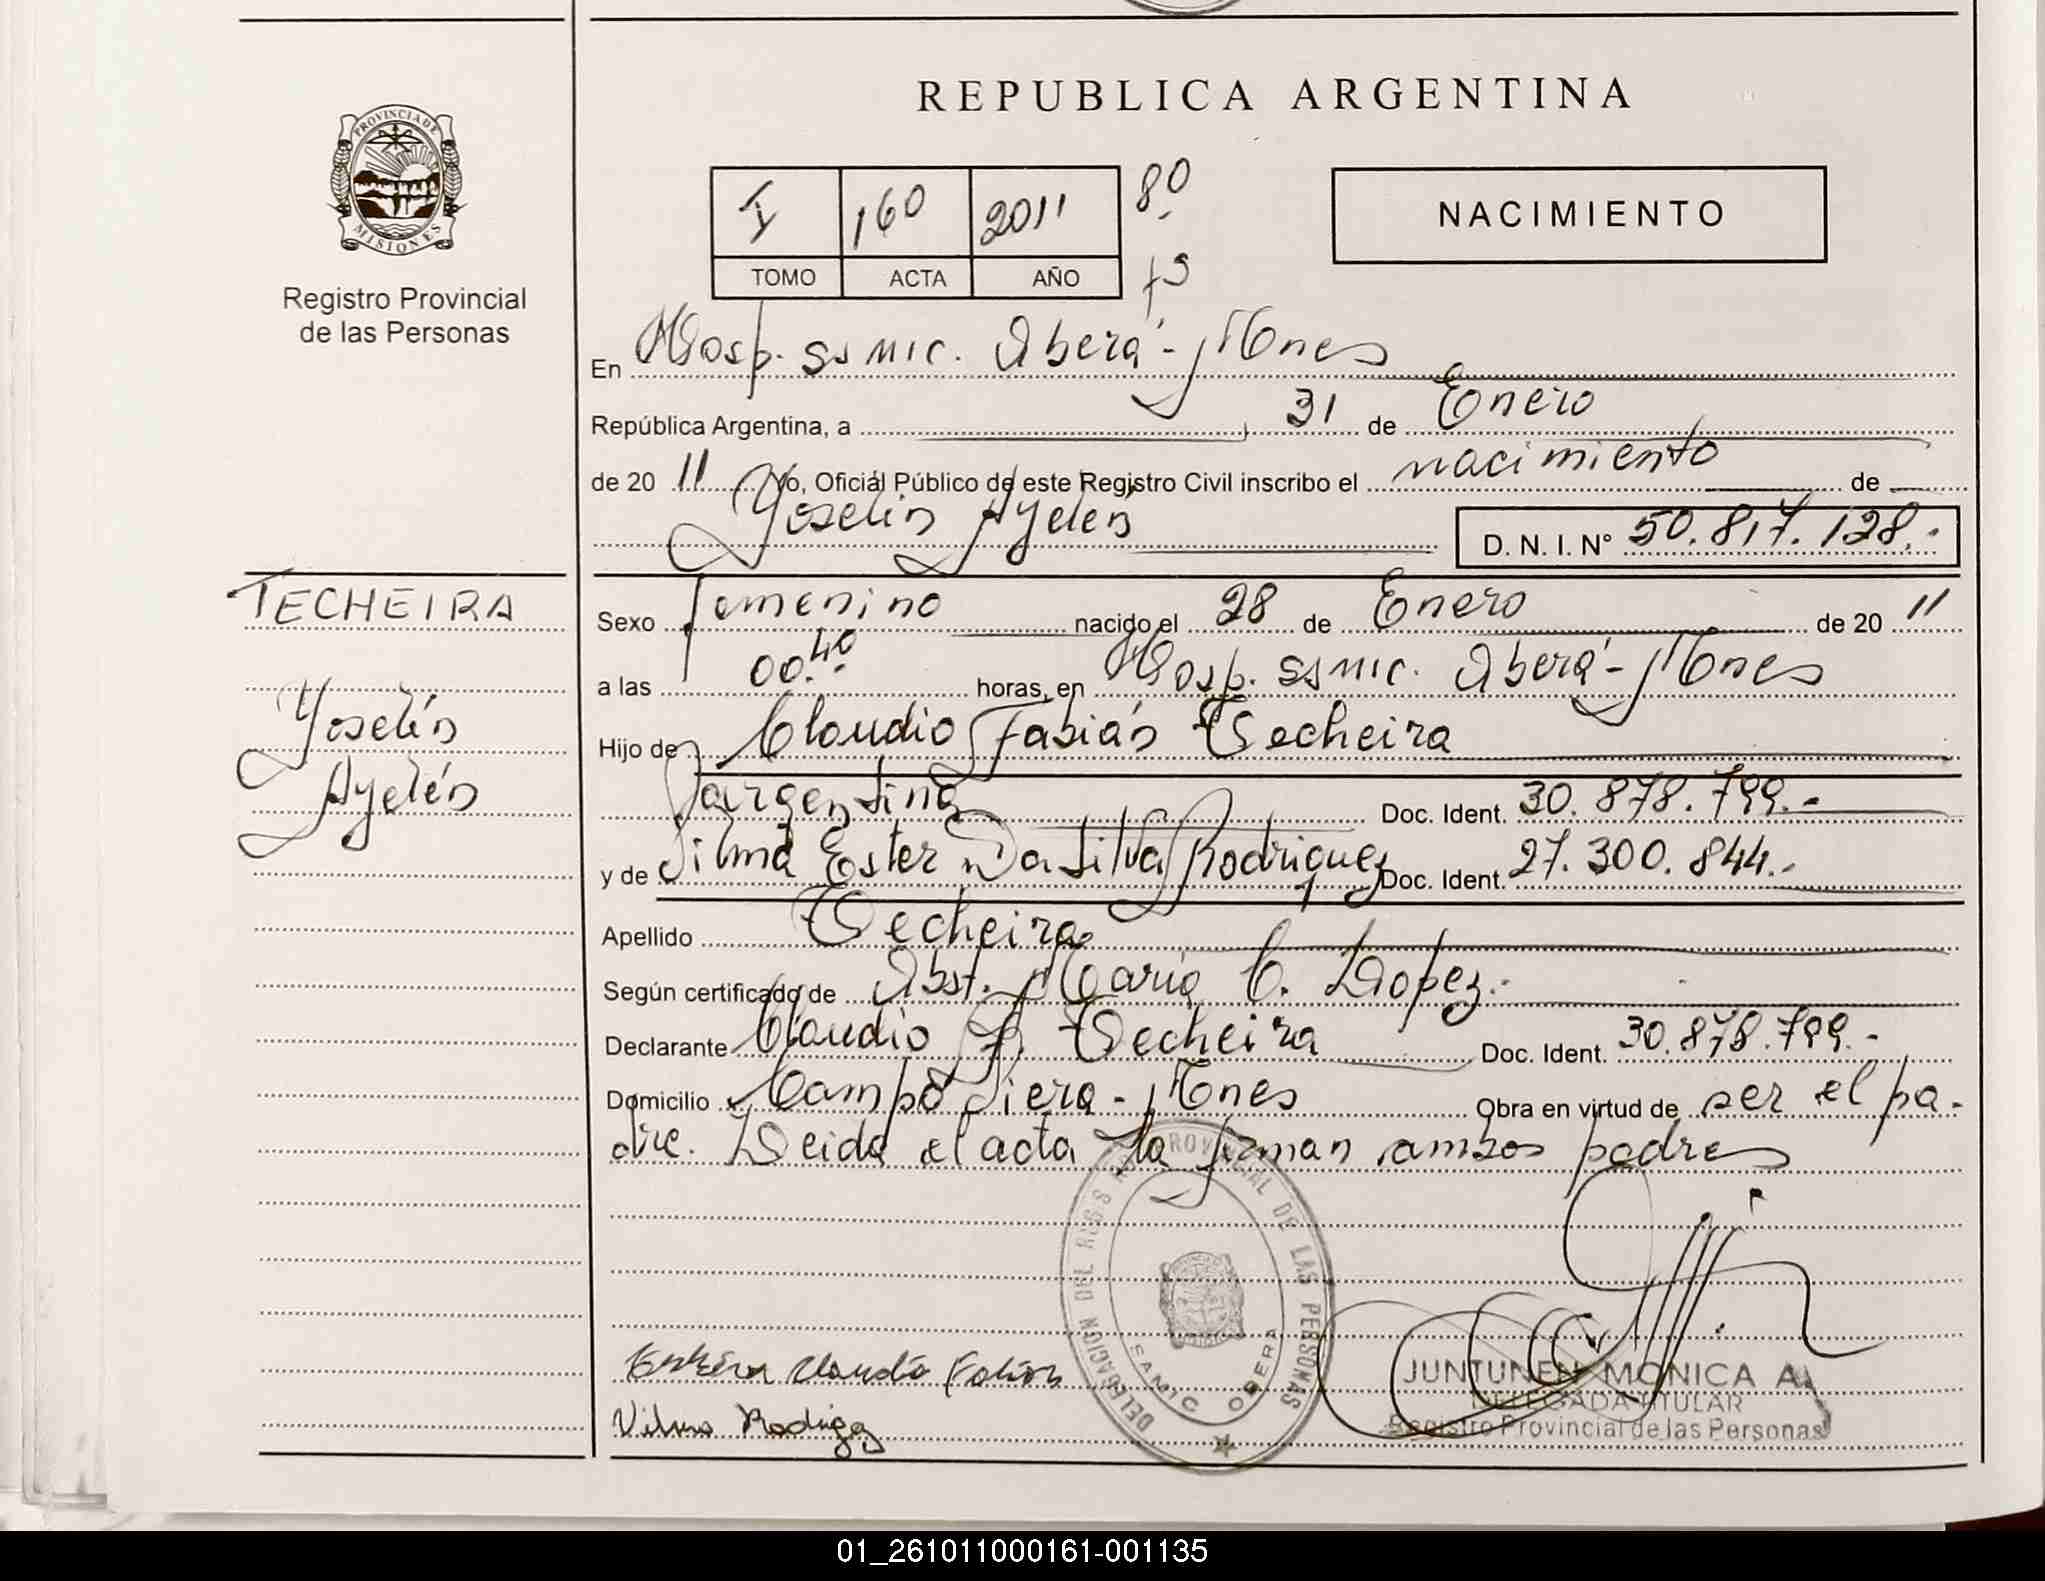 PROVINCIA DE
MISIONES
Registro Provincial
de las Personas
REPUBLICA ARGENTINA
I 160 2011 80
TOMO ACTA AÑO fs
NACIMIENTO
En Hosp. SSMIC. Oberá - Mnes
República Argentina, a 31 de Enero
de 20 11 Yo, Oficial Público de este Registro Civil inscribo el nacimiento de
Yoselin Ayelén D. N. I. N° 50.817.128.-
TECHEIRA
Yoselín
Ayelén
Sexo femenino nacido el 28 de Enero de 20 11
a las 00.40 horas, en Hosp. SSMIC. Oberá - Mnes
Hijo de Claudio Fabián Techeira
argentina Doc. Ident. 30.878.799.-
y de Silma Ester Da Silva Rodriguez Doc. Ident. 27.300.844.-
Apellido Techeira
Según certificado de Obst. María C. Lopez.-
Declarante Claudio F. Techeira Doc. Ident. 30.878.799.-
Domicilio Campo Viera - Mnes Obra en virtud de ser el pa-
dre. Leida el acta la firman ambos padres
DELEGACION DEL REGISTRO PROVINCIAL DE LAS PERSONAS
SAMIC OBERA
Claudio Fabian
Vilma Rodrigez
JUNTUNEN MONICA A.
DELEGADA TITULAR
Registro Provincial de las Personas
01_261011000161-001135